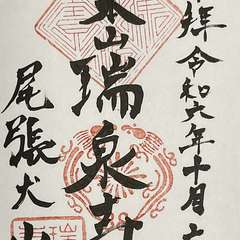 拝 令和六年十月十
東山瑞泉寺
尾張犬山